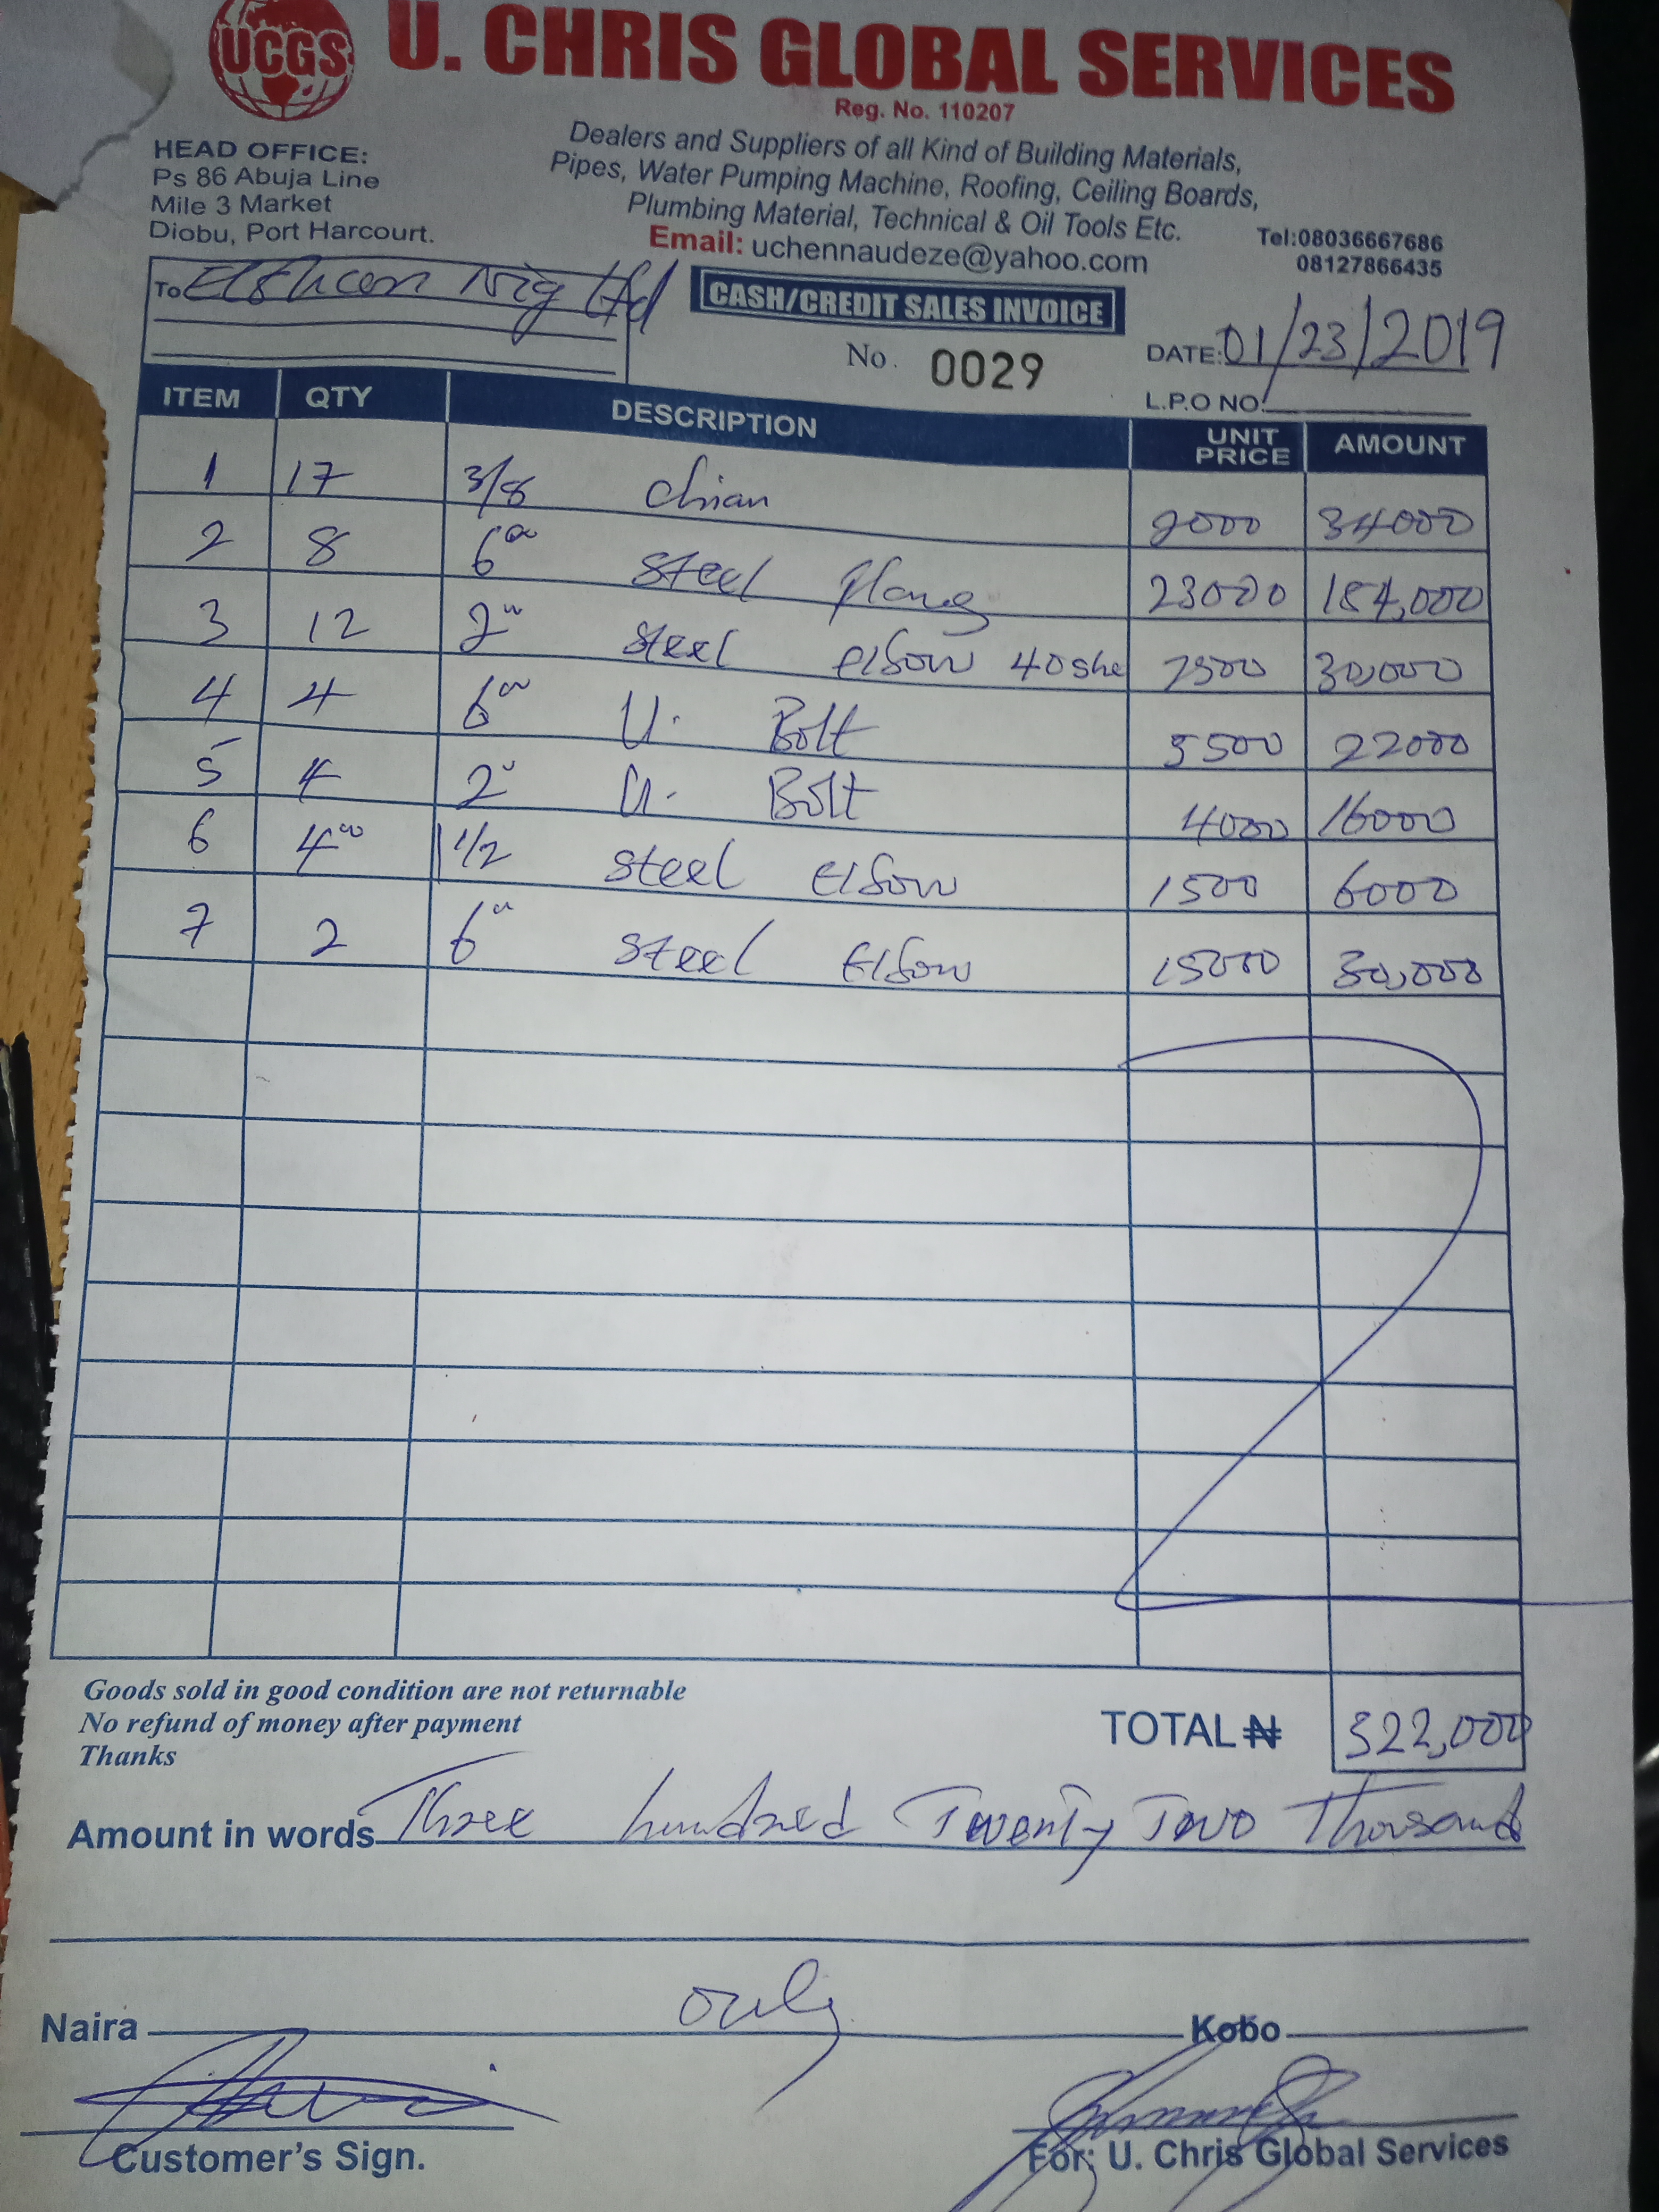 UCGS
U. CHRIS GLOBAL SERVICES
Reg. No. 110207
Dealers and Suppliers of all Kind of Building Materials,
Pipes, Water Pumping Machine, Roofing, Ceiling Boards,
Plumbing Material, Technical & Oil Tools Etc.
Email: uchennaudeze@yahoo.com
HEAD OFFICE:
Ps 86 Abuja Line
Mile 3 Market
Diobu, Port Harcourt.
Tel:08036667686
08127866435
To Nig Ltd
CASH/CREDIT SALES INVOICE
No. 0029
DATE: 01/23/2019
L.P.O NO:
ITEM QTY DESCRIPTION UNIT PRICE AMOUNT
1 17 3/8 chian 2000 34000
2 8 6" steel flang 23000 184,000
3 12 2" steel elbow 40 she 2500 30,000
4 4 6" U. Bolt 5500 22000
5 4 2" U. Bolt 4000 16000
6 4" 1 1/2 steel Elbow 1500 6000
7 2 6" steel Elbow 15000 30,000
Goods sold in good condition are not returnable
No refund of money after payment
Thanks
TOTAL ₦ 322,000
Amount in words Three hundred Twenty Two Thousand
Naira only Kobo
Customer's Sign.
For: U. Chris Global Services